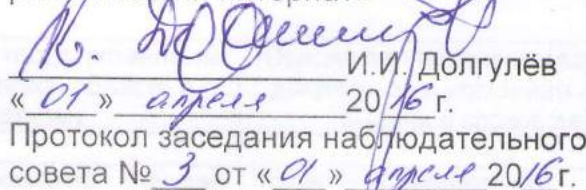 И.И. Долгулёв
«01» апреля 2016 г.
Протокол заседания наблюдательного
совета № 3 от «01» апреля 2016г.